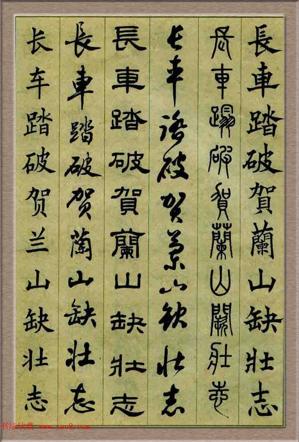 長車踏破賀蘭山缺壯志
長車蹋破賀蘭山闕壯志
长车踏破贺兰山缺壮志
長車踏破賀蘭山缺壯志
長車踏破賀蘭山缺壯志
长车踏破贺兰山缺壮志